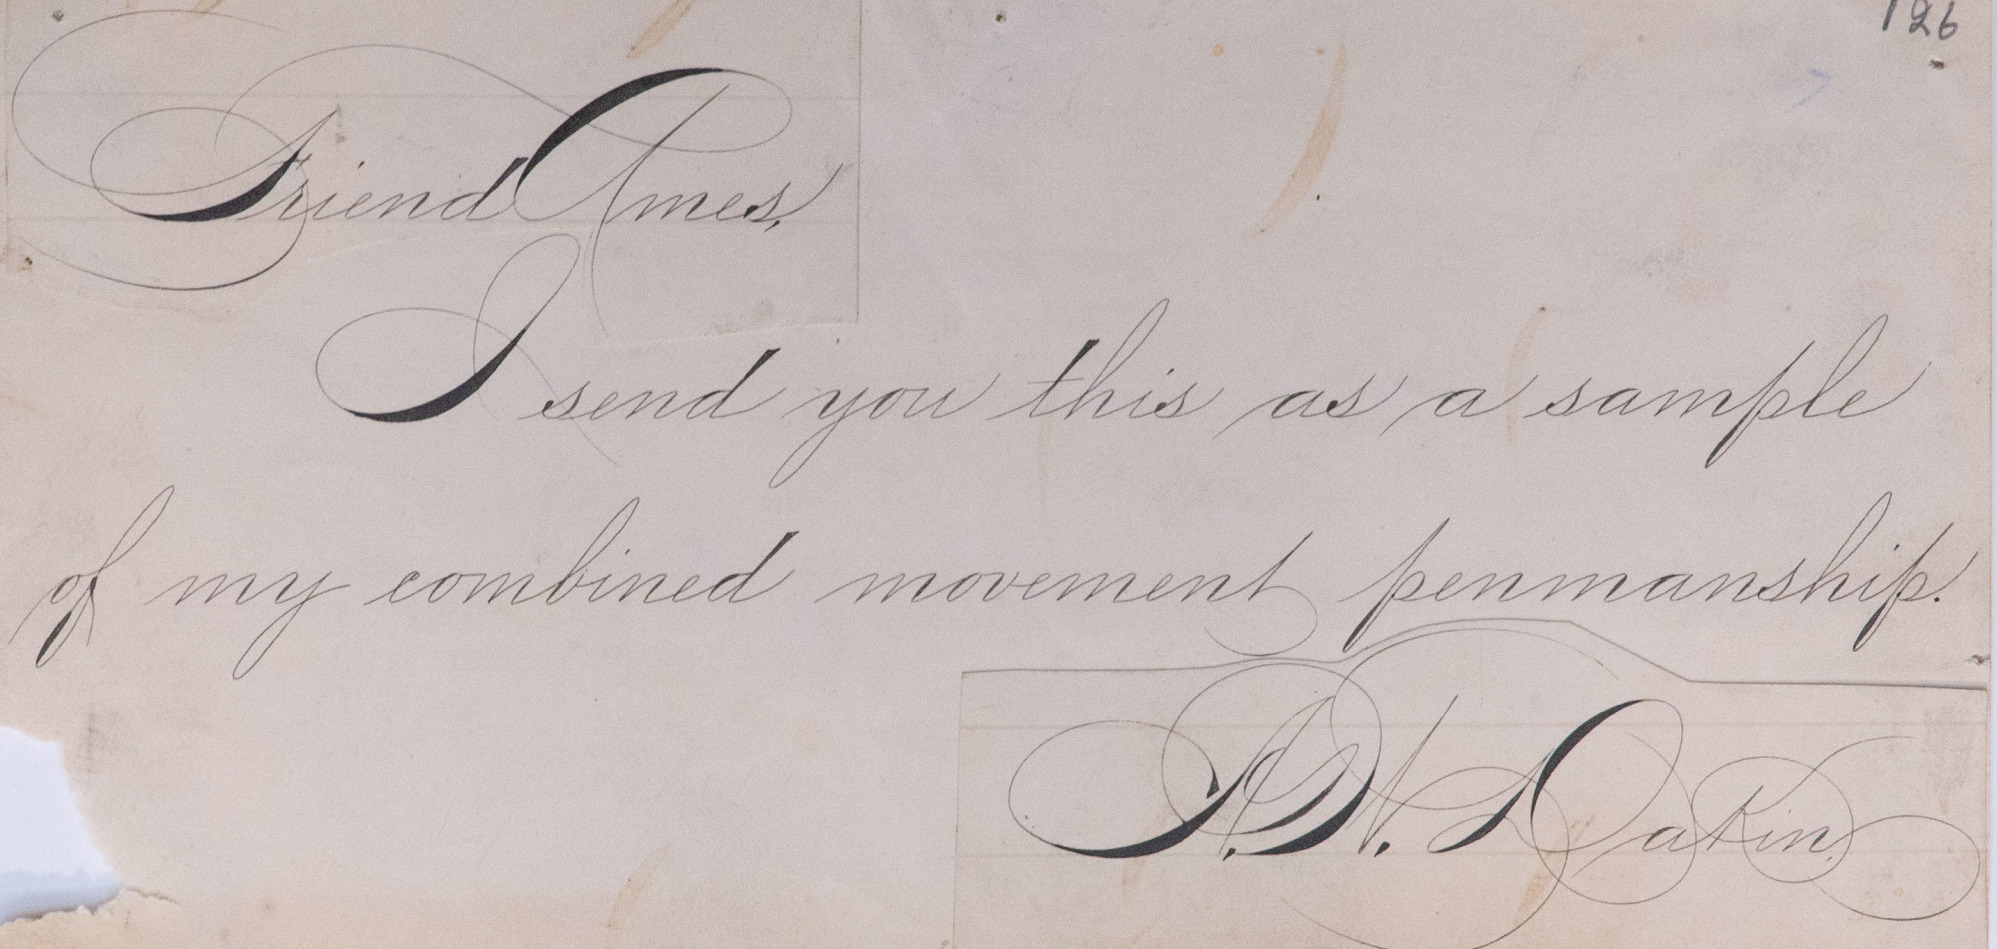 126
Friend Ames,
I send you this as a sample
of my combined movement penmanship.
A. W. Dakin.